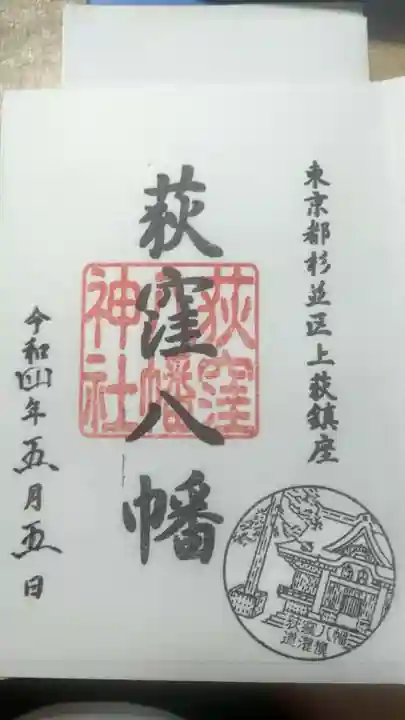 東京都杉並区上荻鎮座
荻窪八幡
荻窪
八幡
神社
令和四年五月五日
荻窪八幡